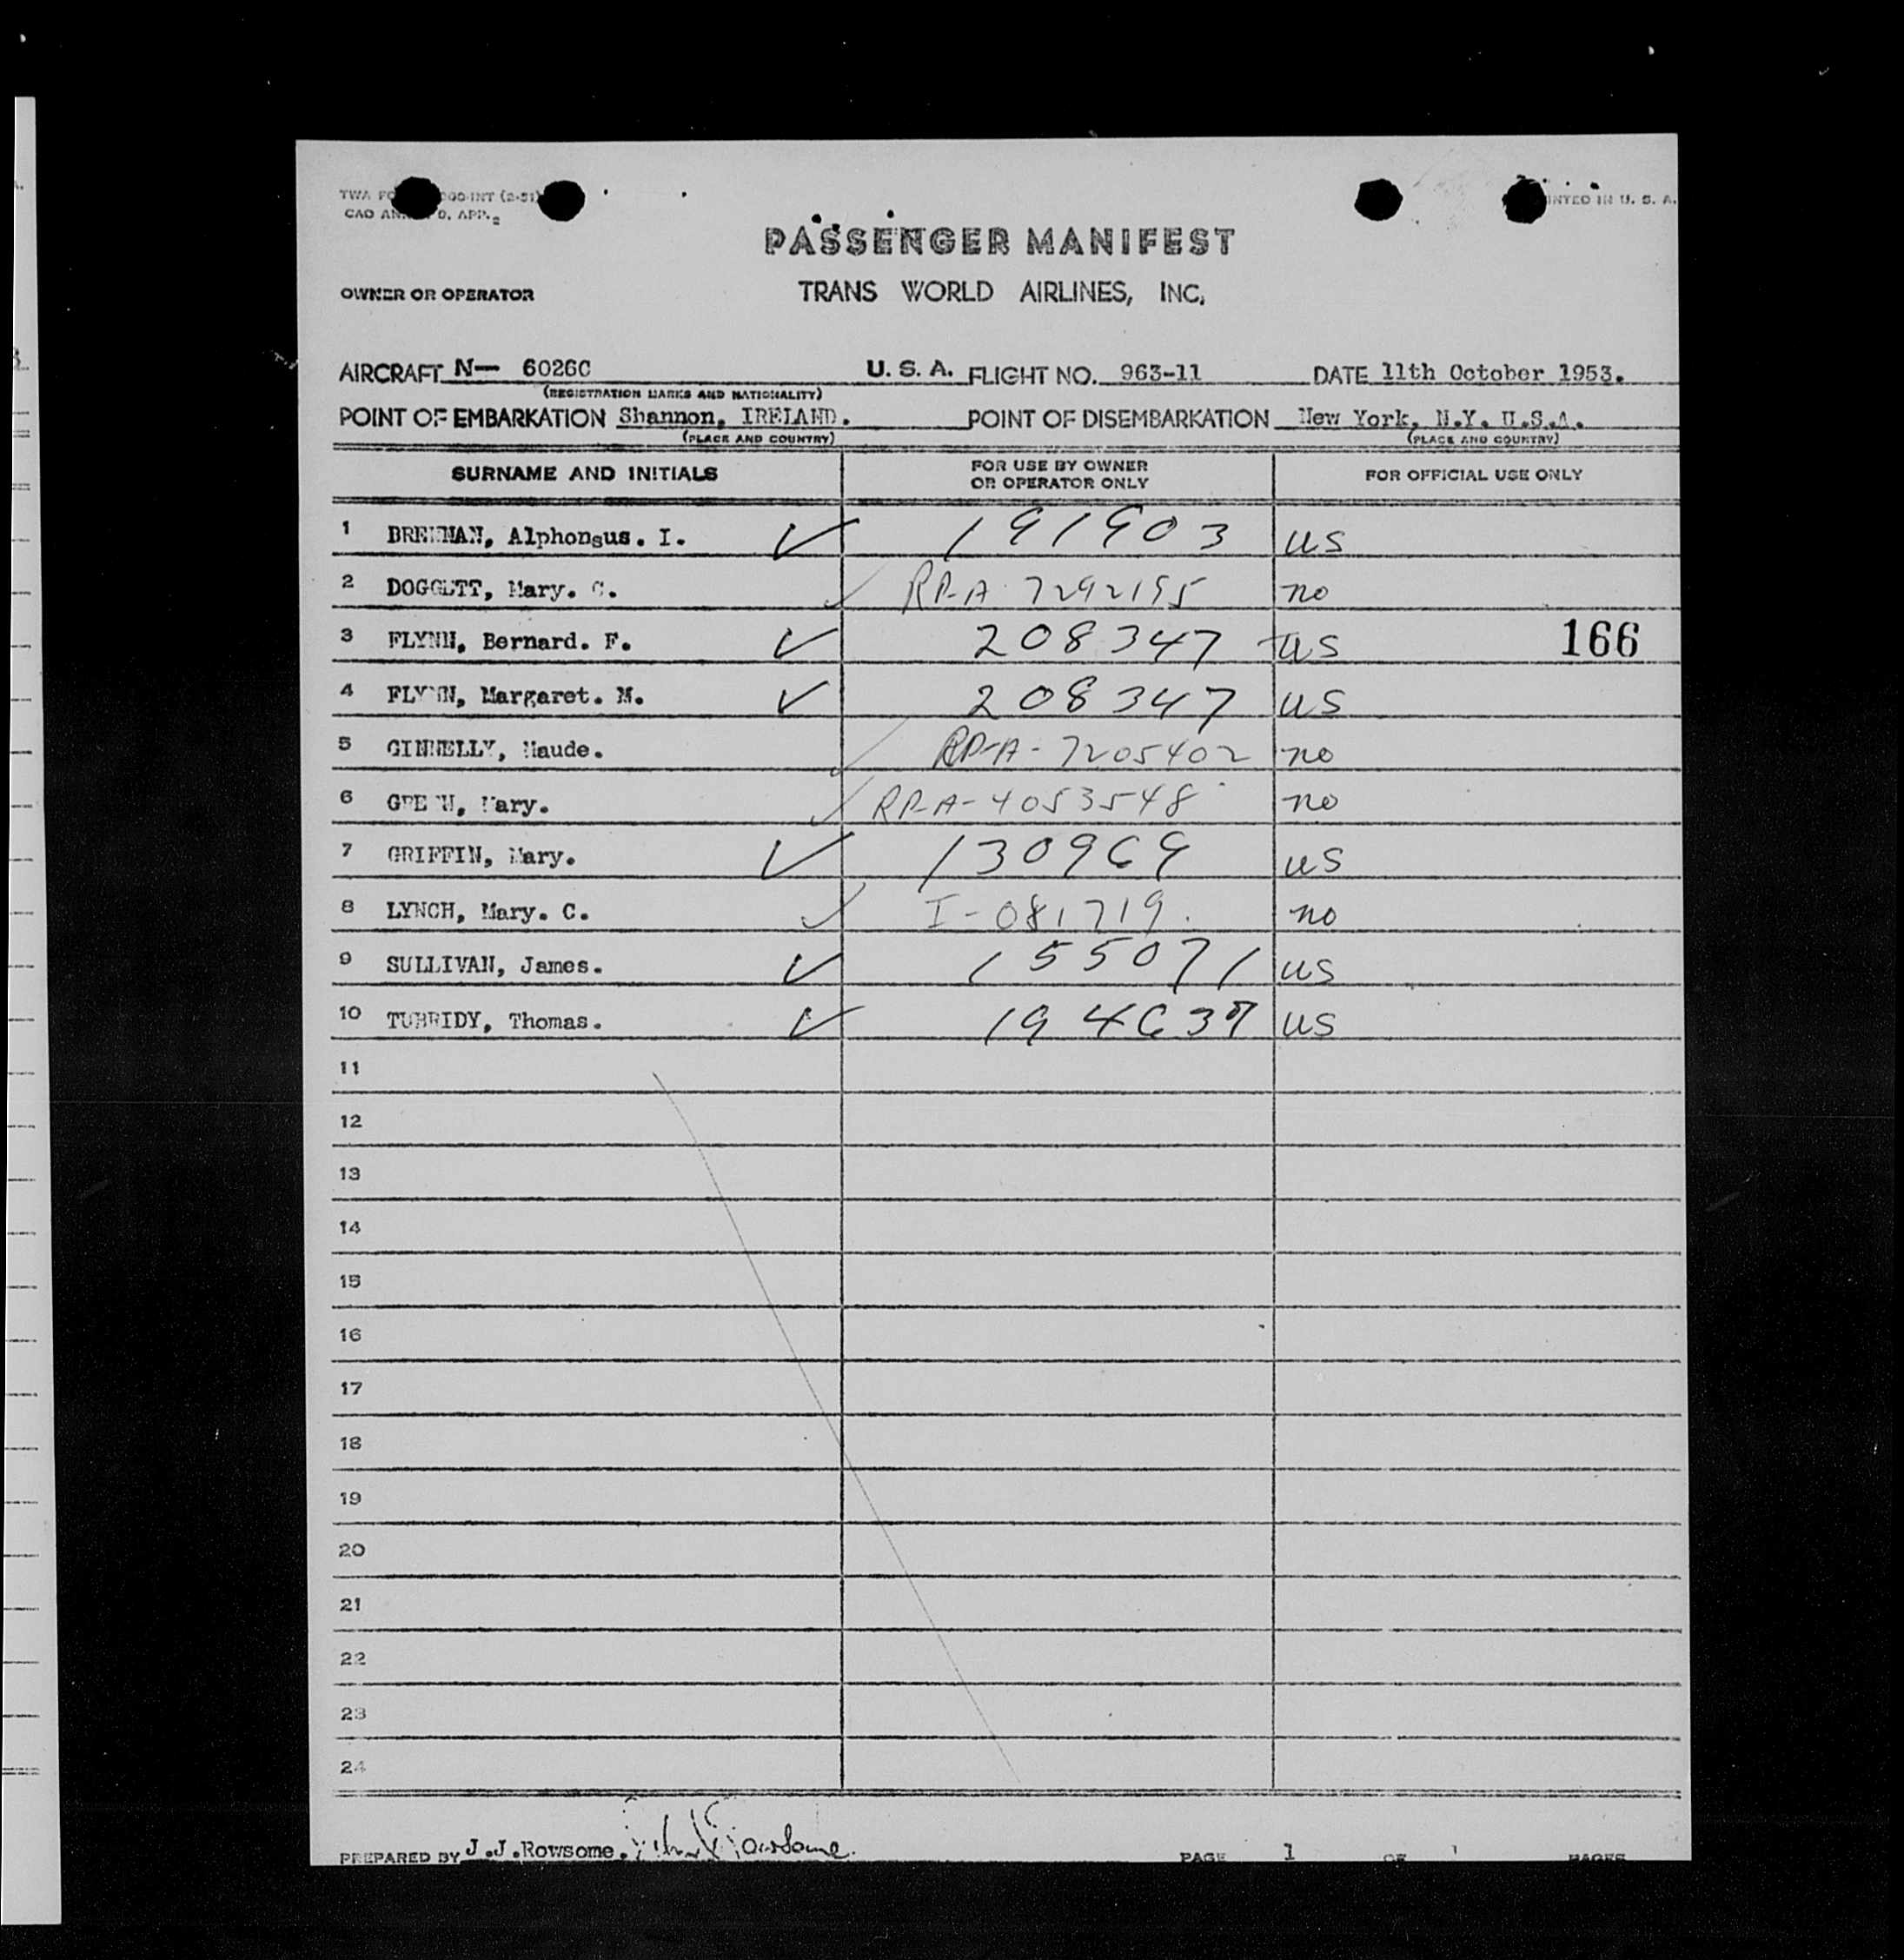 PASSENGER MANIFEST
OWNER OR OPERATOR TRANS WORLD AIRLINES, INC.
AIRCRAFT N— 6026C U. S. A. FLIGHT NO. 963-11 DATE 11th October 1953.
(REGISTRATION MARKS AND NATIONALITY)
POINT OF EMBARKATION Shannon, IRELAND. POINT OF DISEMBARKATION New York, N.Y. U.S.A.
(PLACE AND COUNTRY) (PLACE AND COUNTRY)
SURNAME AND INITIALS FOR USE BY OWNER OR OPERATOR ONLY FOR OFFICIAL USE ONLY
1 BRENNAN, Alphonsus. I. ✓ 191903 US
2 DOGGETT, Mary. C. ✓ RP-A 7292195 no
3 FLYNN, Bernard. F. ✓ 208347 US 166
4 FLYNN, Margaret. M. ✓ 208347 US
5 GINNELLY, Maude. ✓ RP-A-7205402 no
6 GREEN, Mary. ✓ RP-A-4053548 no
7 GRIFFIN, Mary. ✓ 130969 US
8 LYNCH, Mary. C. ✓ I-081719. no
9 SULLIVAN, James. ✓ 155071 US
10 TUBRIDY, Thomas. ✓ 194637 US
11
12
13
14
15
16
17
18
19
20
21
22
23
24
PREPARED BY J.J.Rowsome. PAGE 1 OF 1 PAGES